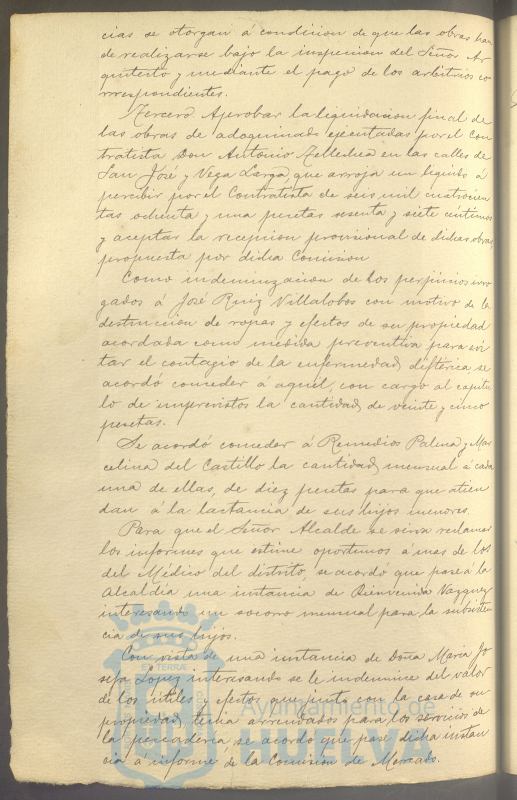 cias se otorgan a condicion de que las obras han
de realizarse bajo la inspeccion del Señor Ar
quitecto y mediante el pago de los arbitrios co
rrespondientes.
Tercero. Aprobar la liquidacion final de
las obras de adoquinado ejecutadas por el Con
tratista Don Antonio en las calles de
San José y Vega Larga, que arroja un liquido á
percibir por el Contratista de seis mil cuatrocien
tas ochenta y una pesetas sesenta y siete centimos
y aceptar la recepcion provisional de dichas obras,
propuesta por dicha Comision
Como indemnizacion de los perjuicios irro
gados á José Ruiz Villalobos con motivo de la
destruccion de ropas y efectos de su propiedad
acordada como medida preventiva para evi
tar el contagio de la enfermedad diftérica se
acordó conceder á aquel, con cargo al capitu
lo de imprevistos la cantidad de veinte y cinco
pesetas.
Se acordó conceder á Remedios Palma y Mar
celina del Castillo la cantidad mensual á cada
una de ellas, de diez pesetas para que atien
dan á la lactancia de sus hijos menores.
Para que el Señor Alcalde se sirva reclamar
los informes que estime oportunos á mas de los
del Médico del distrito, se acordó que pase á la
Alcaldía una instancia de Bienvenida Vazquez
interesando un socorro mensual para la subsisten
cia de sus hijos.
Con vista de una instancia de Doña María Jo
sefa López interesando se le indemnice del valor
de los útiles y efectos que junto con la casa de su
propiedad tenia arrendados para los servicios de
la pescaderia, se acordó que pase dicha instan
cia á informe de la Comision de Mercado.
Ayuntamiento de
HUELVA